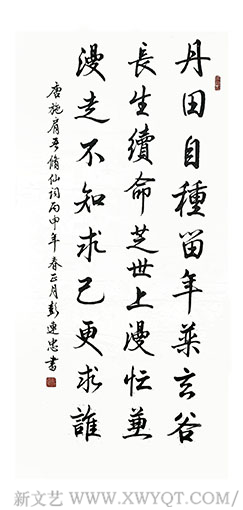 丹田自種留年藥玄谷
長生續命芝世上漫忙兼
漫走不知求己更求誰
唐施肩吾脩仙詞丙申年春正月彭連忠書
新文艺 WWW.XWYQT.COM/